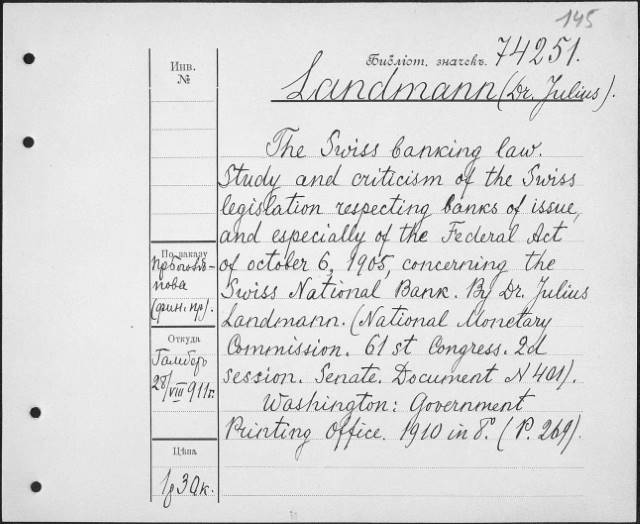 145
Библіот. значекъ. 74251.
Landmann (Dr. Julius).
Инв.
№
The Swiss banking law.
Study and criticism of the Swiss
legislation respecting banks of issue,
and especially of the Federal Act
of october 6, 1905, concerning the
Swiss National Bank. By Dr. Julius
Landmann. (National Monetary
Commission. 61 st Congress. 2d
session. Senate. Document N 401).
Washington: Government
Printing Office. 1910 in 8°. (P. 269).
По заказу
(фин. пр).
Откуда
28/VIII 911 г.
Цѣна
1 р 30 к.